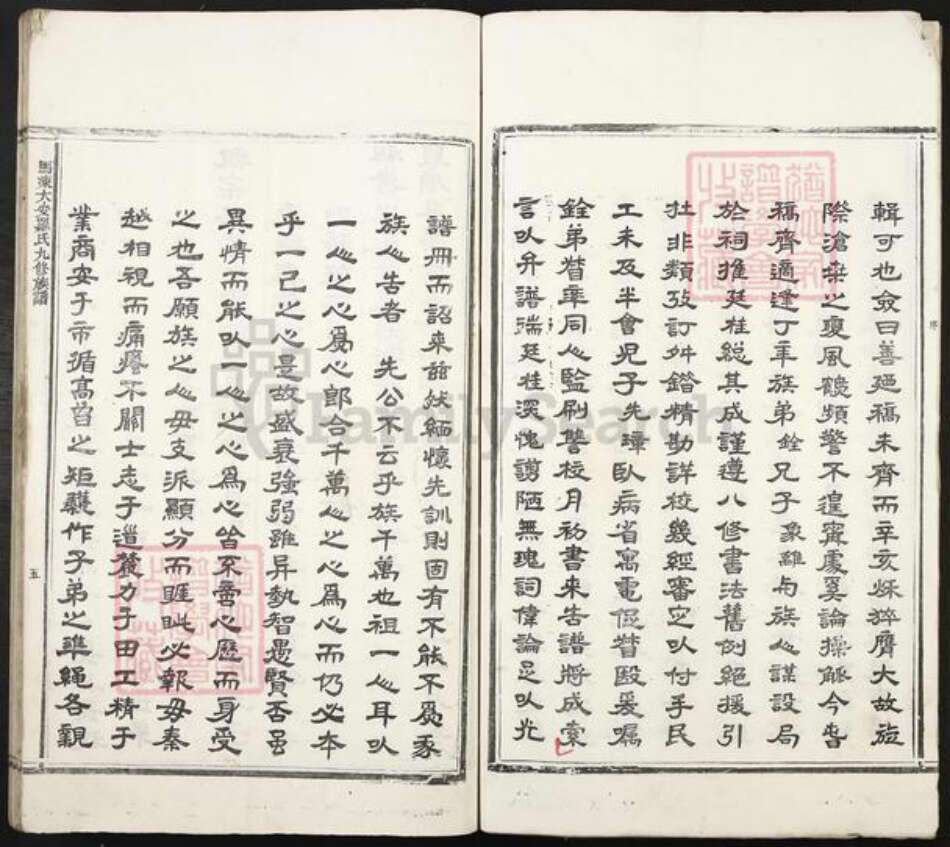 輯可也僉曰善廼稿未齊而辛亥烁猝膺大故旋
際滄桑之變風鶴頻驚不遑甯處奚論操觚今春
稿齊適逢丁年族弟銓兄子象離与族人謀設局
於祠推廷桂総其成謹遵八修書法舊例絕援引
杜非類攷訂舛錯精勘詳校幾經審定以付手民
工未及半會児子先璋臥病省寓電促督毉爰嘱
銓弟督率同人監刷讐校月初書来告譜将成索
言以弁譜端廷桂深愧謭陋無瑰詞偉論足以光
譜冊而詔来茲然緬懷先訓則固有不能不為家
族人告者 先公不云乎族千萬也祖一人耳以
一人之心為心郎合千萬人之心為心而仍必本
乎一己之心是故盛衰強弱雖异勢智愚賢否虽
異情而能以一人之心為心皆不啻心歷而身受
之也吾願族之人毋支派顯分而睚眦必報毋秦
越相視而痛癢不關士志于道農力于田工精于
業商安于市循高曾之矩矱作子弟之準繩各親
大安羅氏九修族譜
五
序
FamilySearch